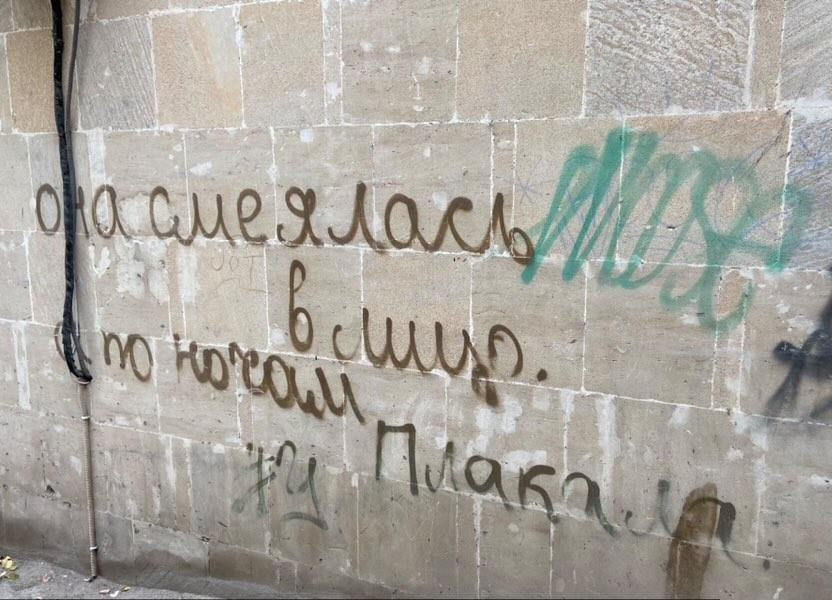 она смеялась
в лицо.
а по ночам
Плакала